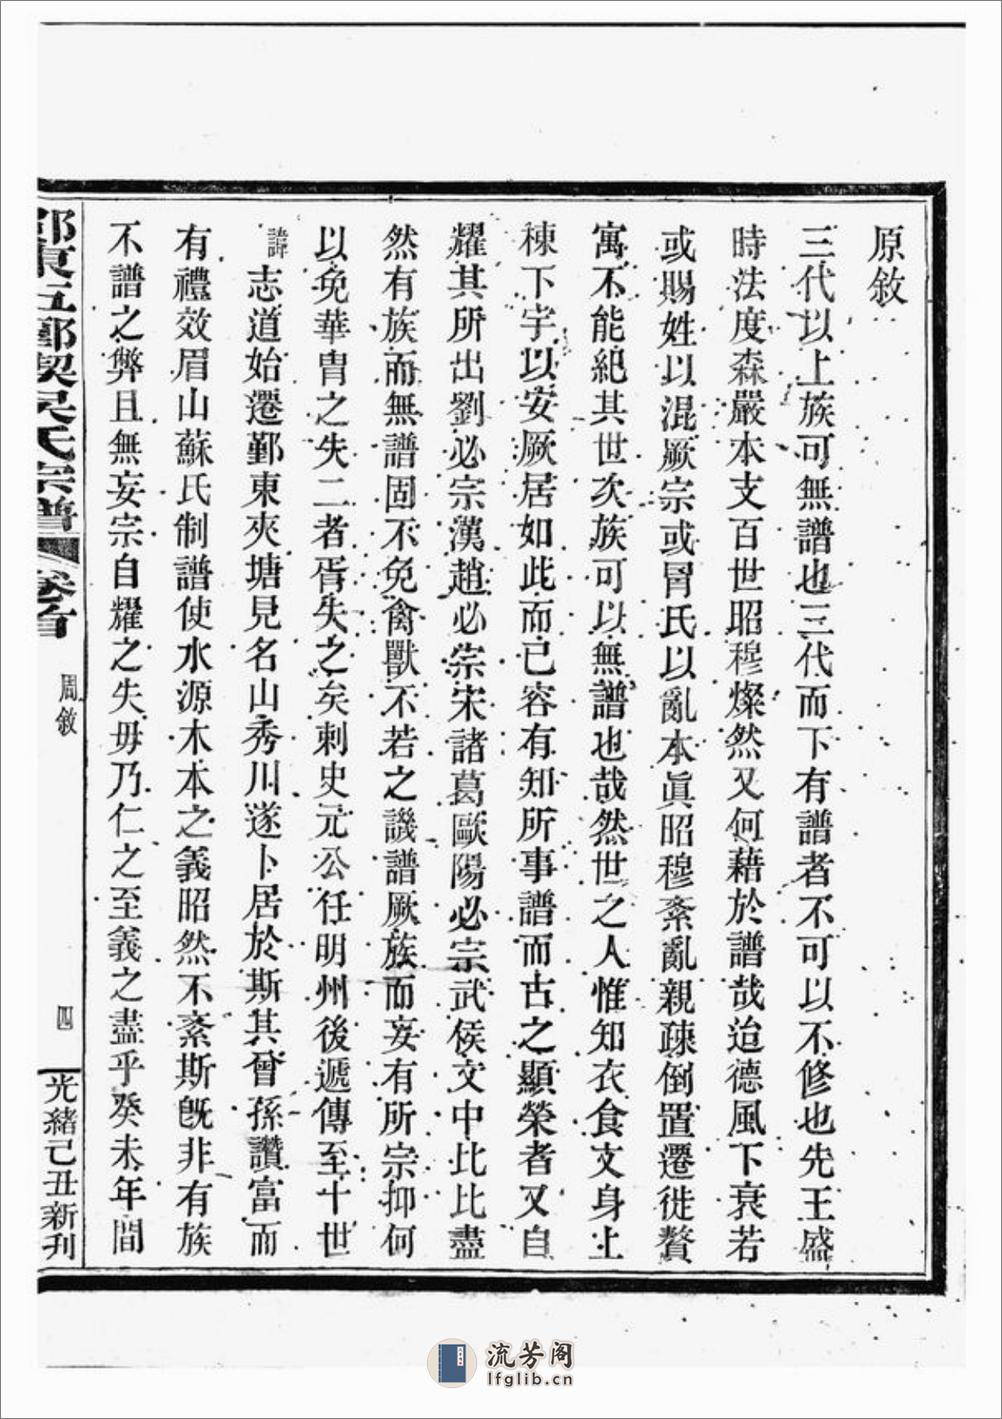 原敘
三代以上族可無譜也三代而下有譜者不可以不修也先王盛
時法度森嚴本支百世昭穆燦然又何藉於譜哉迨德風下衰若
或賜姓以混厥宗或冒氏以亂本眞昭穆紊亂親疎倒置遷徙贅
寓不能紀其世次族可以無譜也哉然世之人惟知衣食文身上
棟下宇以安厥居如此而已容有知所事譜而古之顯榮者又自
耀其所出劉必宗漢趙必宗宋諸葛歐陽必宗武侯文中比比盡
然有族而無譜固不免禽獸不若之譏譜厥族而妄有所宗抑何
以免華冑之失二者胥失之矣刺史元公任明州後遞傳至十世
諱志道始遷鄞東夾塘見名山秀川遂卜居於斯其曾孫讚富而
有禮效眉山蘇氏制譜使水源木本之義昭然不紊斯既非有族
不譜之弊且無妄宗自耀之失毋乃仁之至義之盡乎癸未年間
鄞東五鄉碶吳氏宗譜 卷首 周敘 四 光緒己丑新刊
流芳阁
lfglib.cn